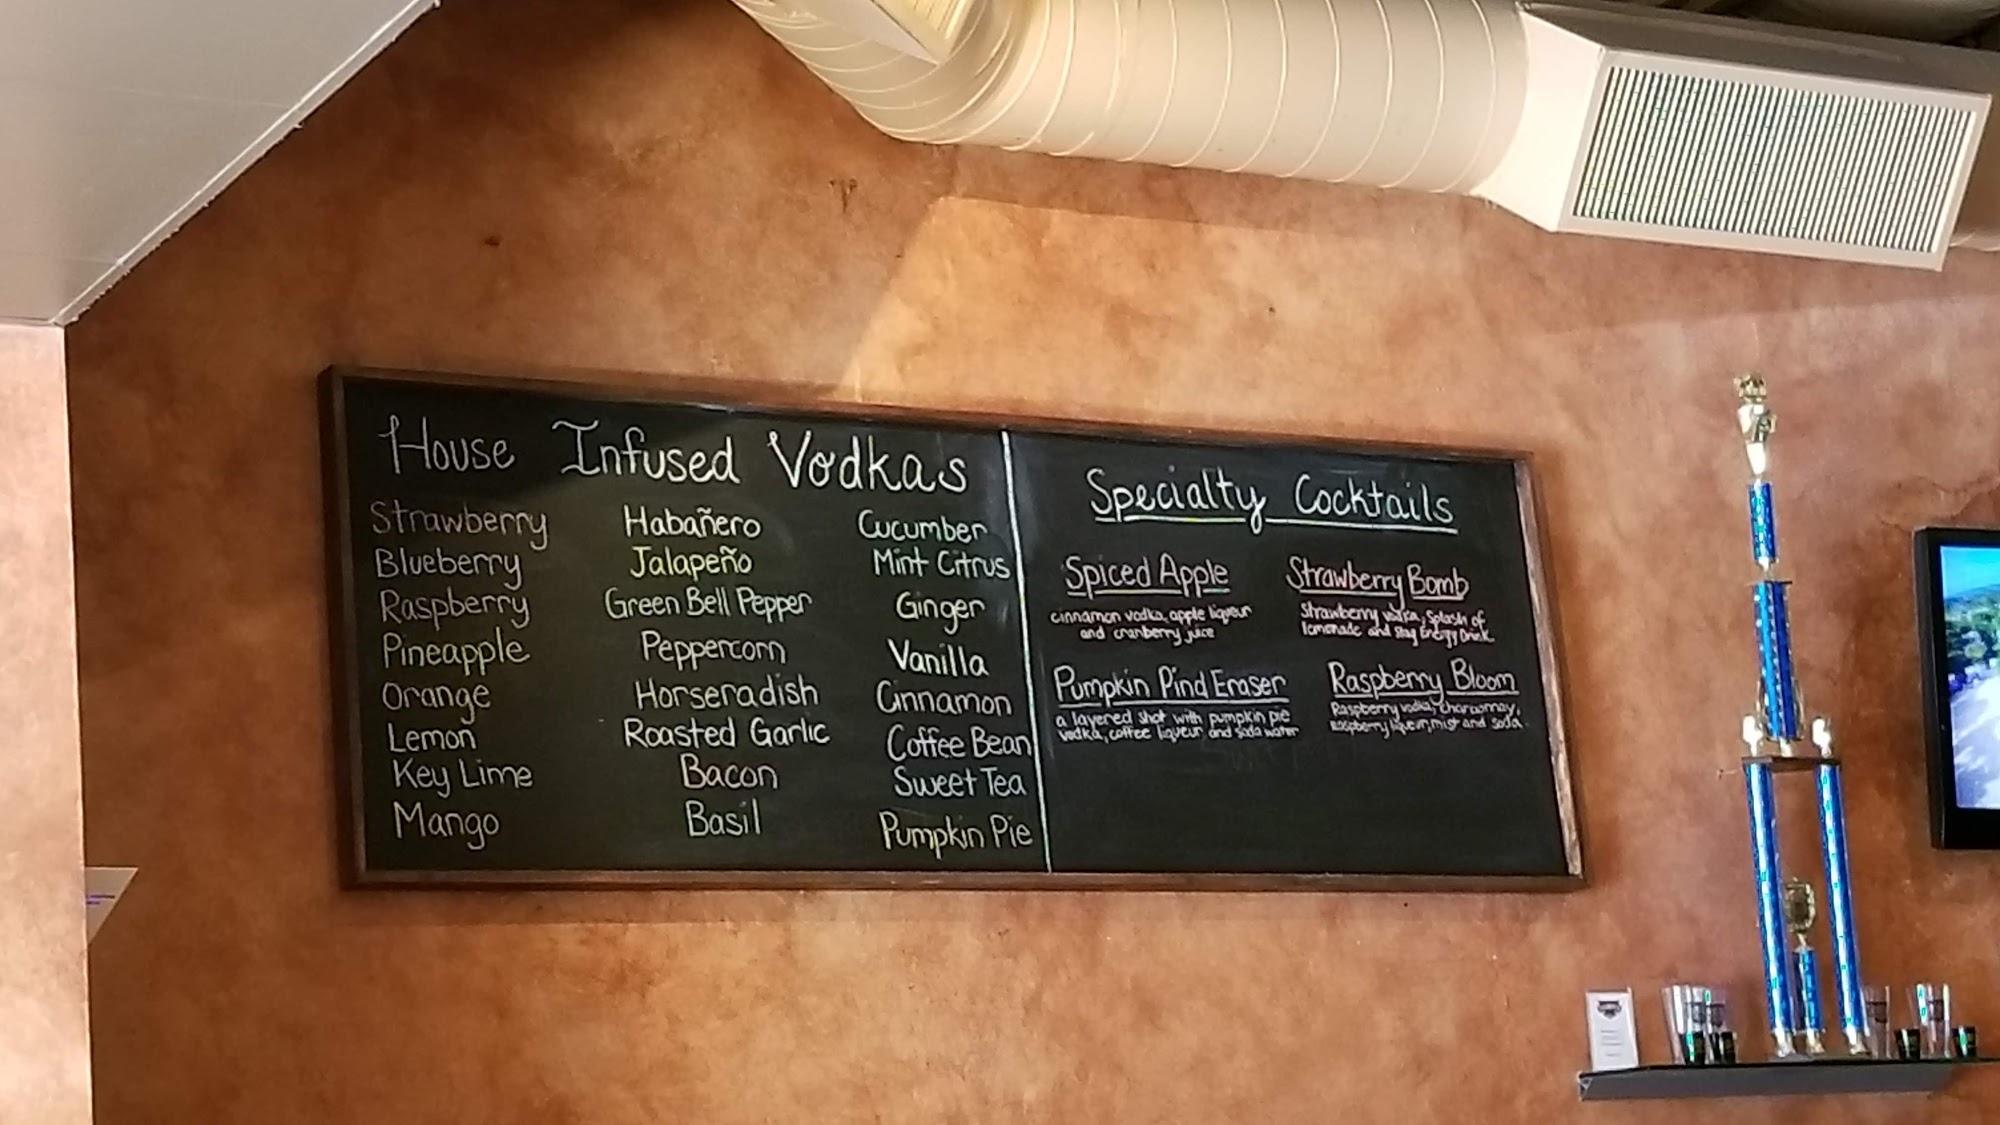 House Infused Vodkas
Strawberry
Blueberry
Raspberry
Pineapple
Orange
Lemon
Key Lime
Mango
Habañero
Jalapeño
Green Bell Pepper
Peppercorn
Horseradish
Roasted Garlic
Bacon
Basil
Cucumber
Mint Citrus
Ginger
Vanilla
Cinnamon
Coffee Bean
Sweet Tea
Pumpkin Pie
Specialty Cocktails
Spiced Apple
cinnamon vodka, apple liqueur
and cranberry juice
Strawberry Bomb
Strawberry vodka, Splash of
lemonade and Stag Energy Drink.
Pumpkin Pind Eraser
a layered shot with pumpkin pie
vodka, coffee liqueur and soda water
Raspberry Bloom
Raspberry vodka, Chardonnay,
Raspberry liqueur, mist and soda.